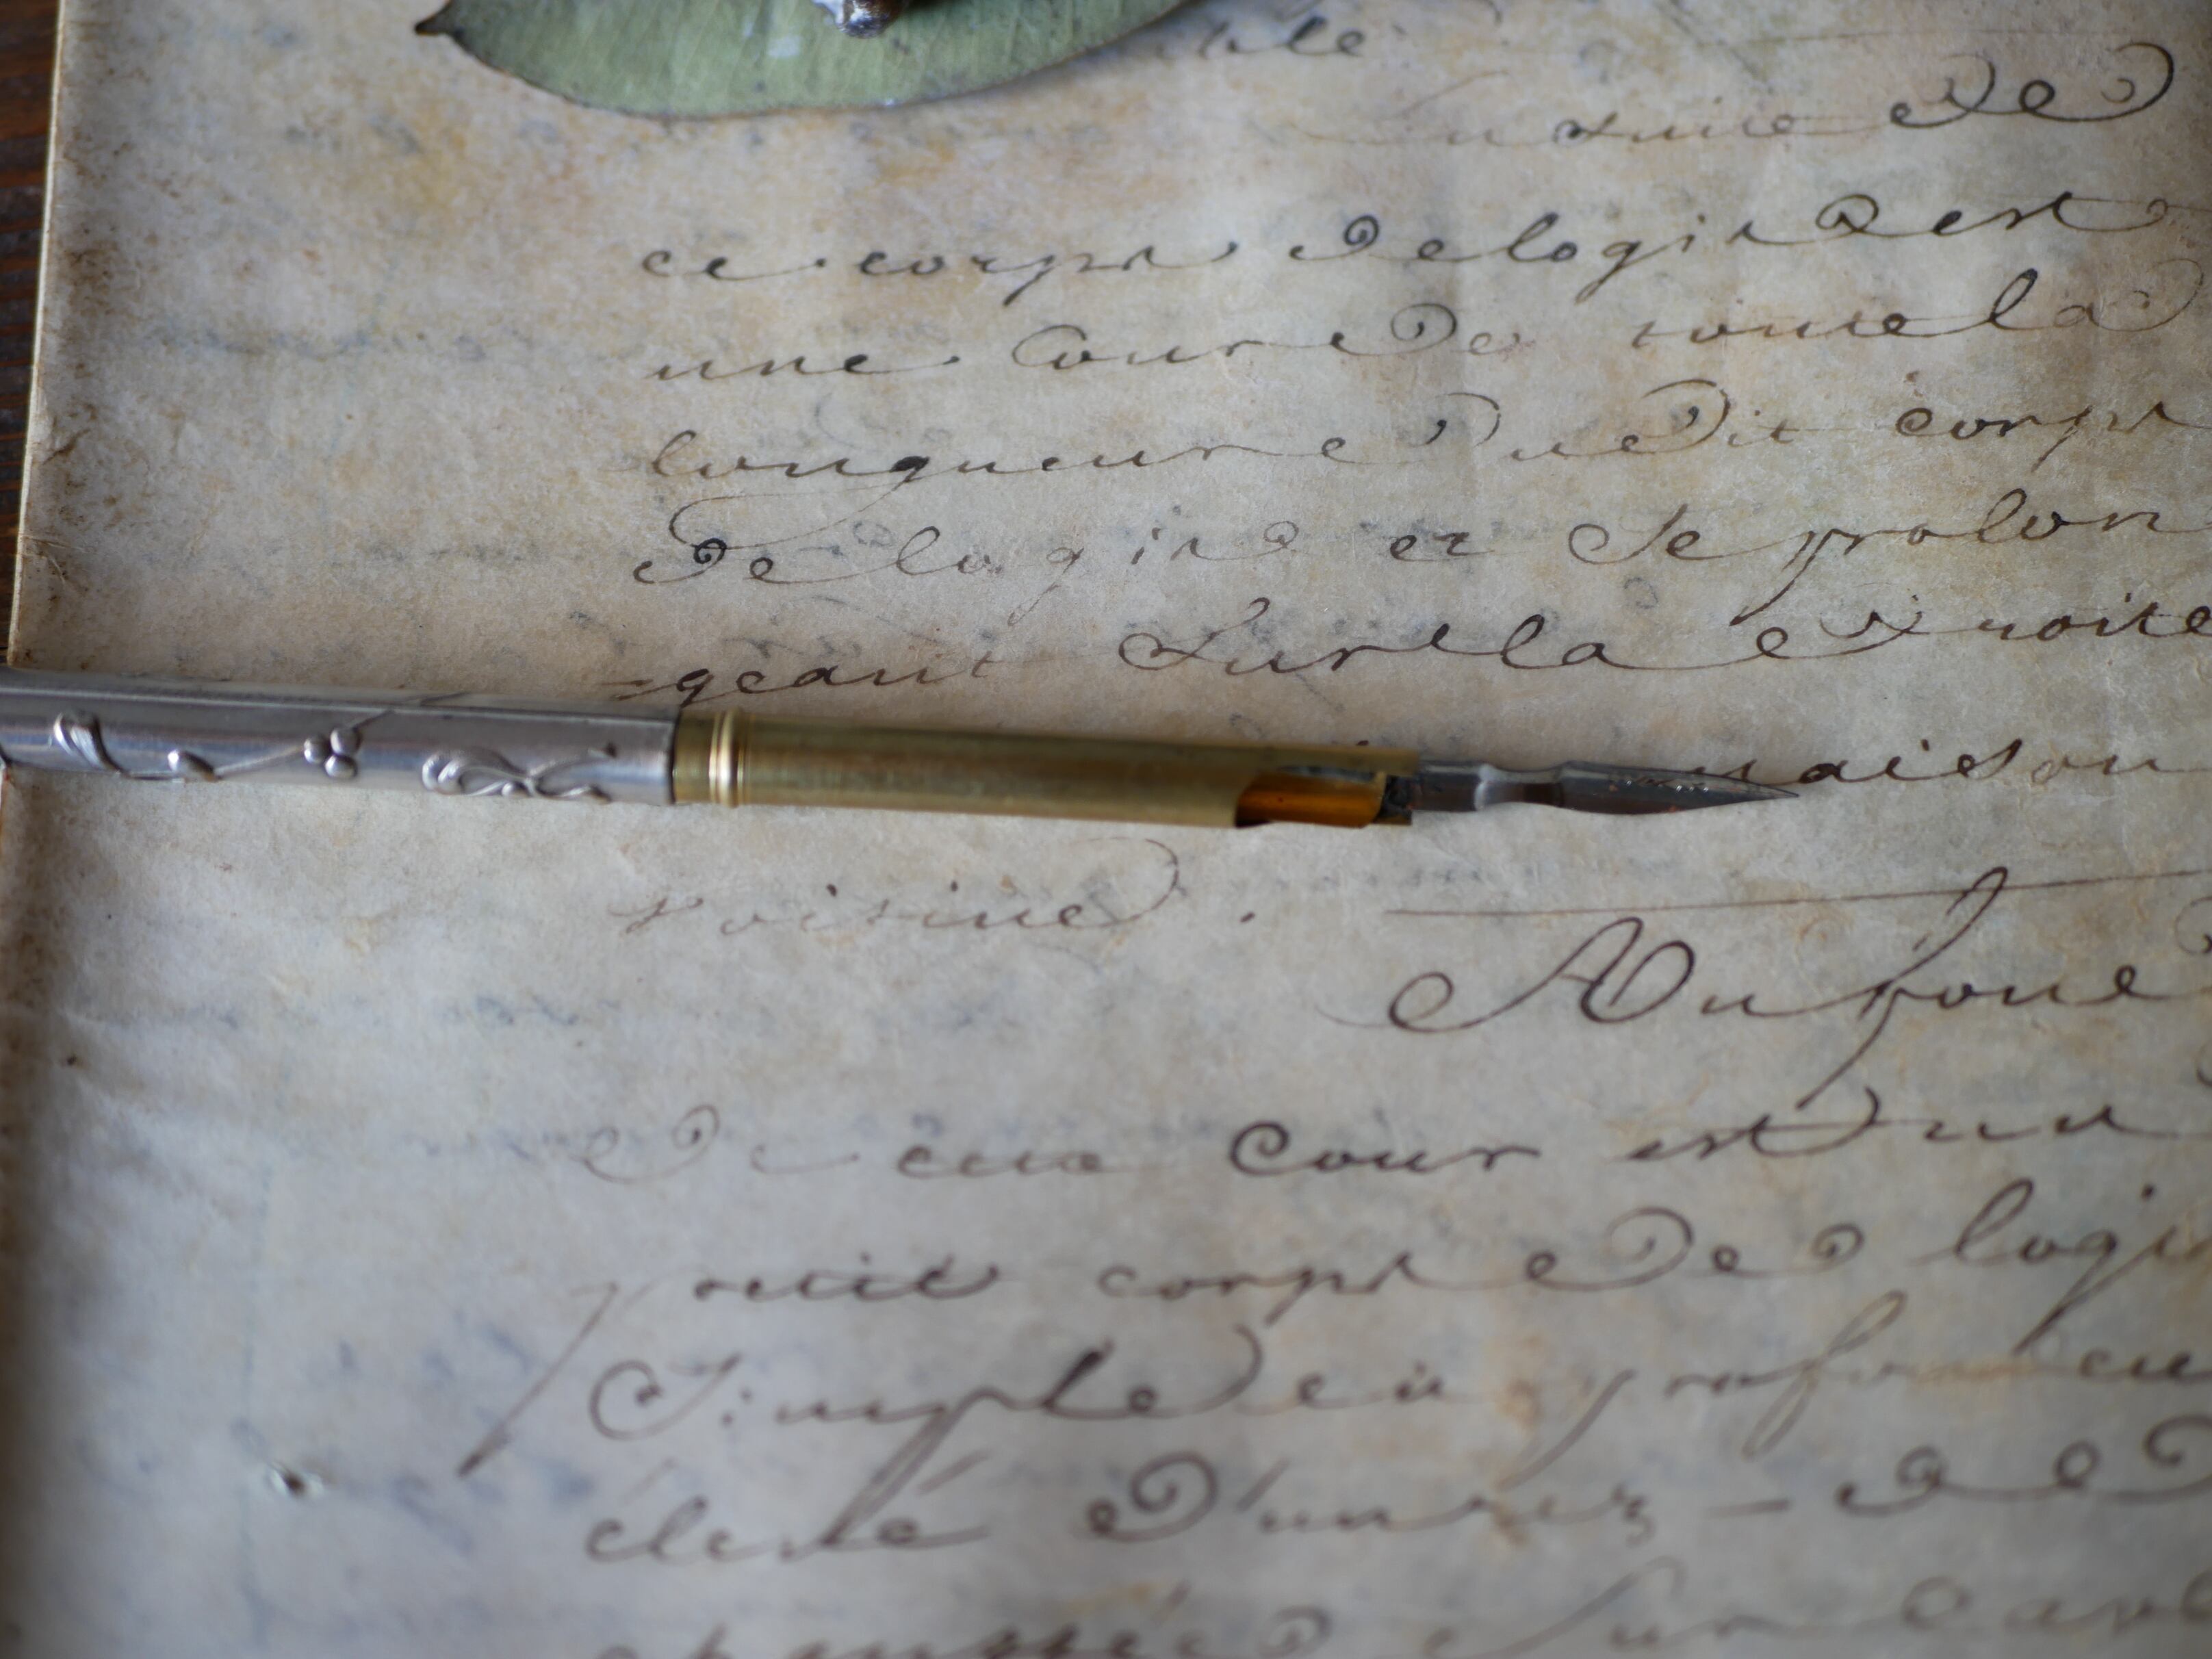 En suite de
ce corps de logis est
une Cour de toute la
longueur du dit corps
de logis et se prolon
=geant sur la droite
maison
voisine.
Au fond
de cette Cour est un
petit corps de logis
simple en profondeu
élevé d'un rez - de
chaussée sur